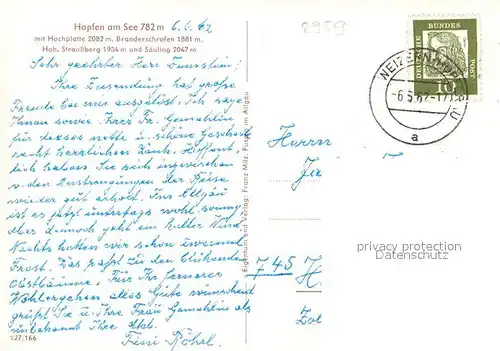 Hopfen am See 782 m 6.6.62
mit Hochplatte 2082 m, Branderschrofen 1881 m,
Hoh. Straußberg 1934 m und Säuling 2047 m
Sehr geehrter Herr
Ihre Zusendung hat große
Freude bei mir ausgelöst. Ich sage
Ihnen sowie Ihrer Fr. Gemahlin
für dieses nette u. schöne Geschenk
recht herzlichen Dank. Hoffent-
lich haben Sie sich inzwischen
v. den Anstrengungen der Reise
wieder gut erholt. Im Allgäu
ist es jetzt untertags wohl sonnig
aber dennoch geht ein kalter Wind.
Nachts hatten wir schon zweimal
Frost. Das paßt zu den blühenden
Obstbäumen. Für Ihr ferneres
Wohlergehen alles Gute wünschend
grüßt Sie u. Ihre Frau Gemahlin als
unbekannt Ihre
Fini Röhrl
127/166
Eigentum und Verlag: Franz Milz, Füssen im Allgäu
2959
DEUTSCHE BUNDESPOST
10
-6.6.62-17
a
Herrn
745 H
privacy protection
Datenschutz